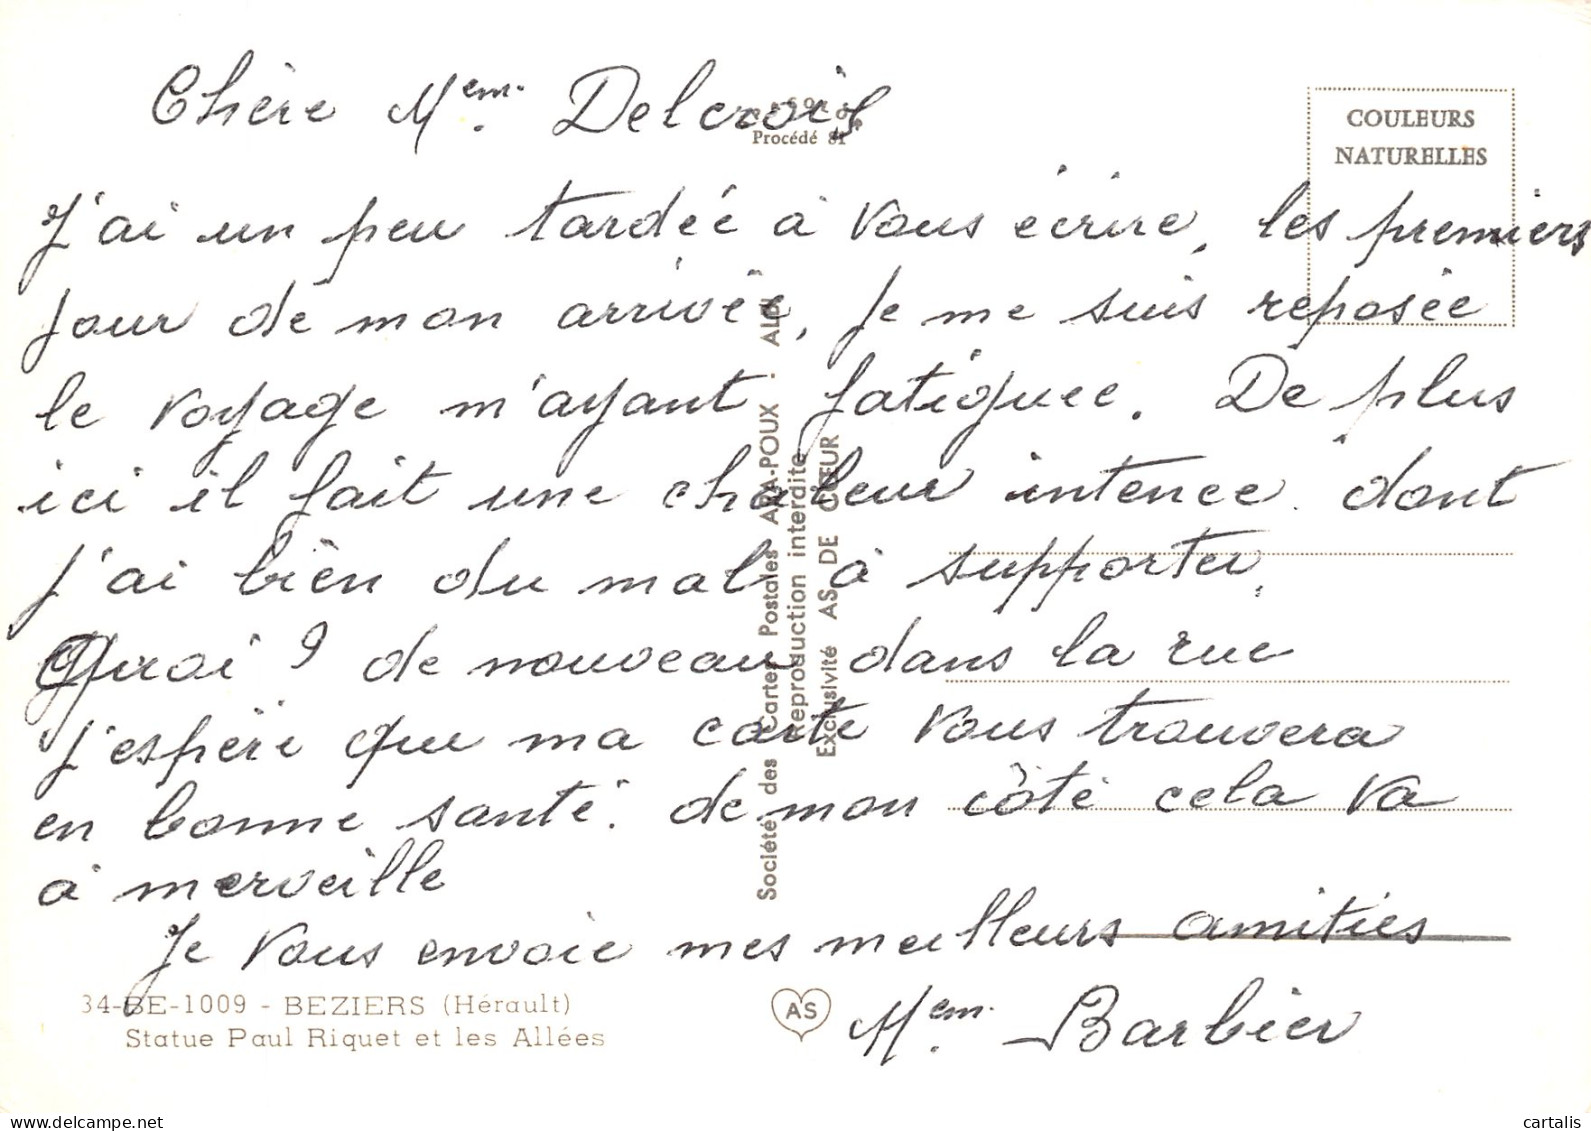 Chère Mem. Delcroix
Procédé 81
COULEURS
NATURELLES
J'ai un peu tardée à vous écrire, les premiers
jour de mon arrivée, je me suis reposée
le voyage m'ayant fatiguee. De plus
ici il fait une chaleur intence. dont
j'ai bien du mal à supporter,
Quoi ? de nouveau dans la rue
j'espère que ma carte vous trouvera
en bonne santé. de mon côté cela va
à merveille
Je vous envoie mes meilleurs amitiés
Mem. Barbier
Société des Cartes Postales APA-POUX - ALBI
Reproduction interdite
Exclusivité AS DE CŒUR
34-BE-1009 - BEZIERS (Hérault)
Statue Paul Riquet et les Allées
AS
www.delcampe.net
cartalis